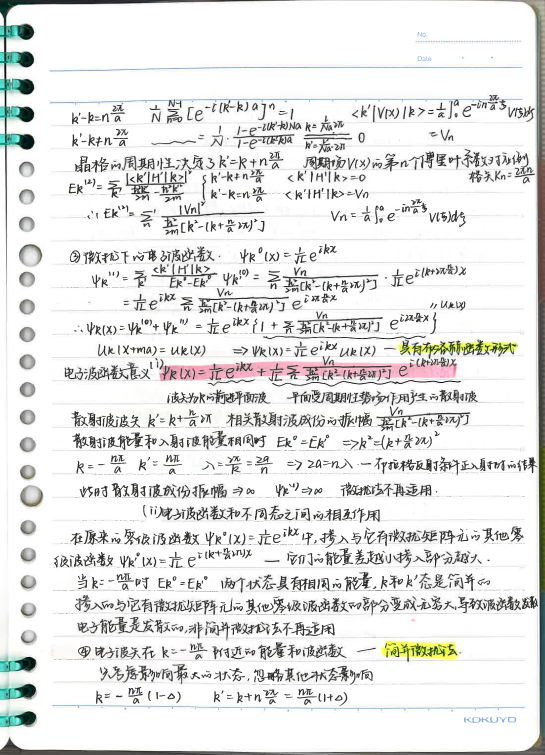 No.
Date
k'-k=n 2π/a  1/N Σ_{n=0}^{N-1} [e^{-i(k'-k)a}]^n = 1  <k'|V(x)|k> = 1/a ∫_0^a e^{-in 2π/a ξ} V(ξ)dξ
k'-k≠n 2π/a  = 1/N · (1-e^{-i(k'-k)Na})/(1-e^{-i(k'-k)a})  k = l/Na 2π  k' = l'/Na 2π  0  = Vn
晶格的周期性决定了 k'=k+n 2π/a  周期场V(x)的第n个傅里叶系数对应倒
格矢Kn = 2πn/a
Ek^(2) = Σ_{k'}' |<k'|H'|k>|²/(ħ²k²/2m - ħ²k'²/2m)  { k'-k≠n 2π/a  <k'|H'|k>=0
k'-k=n 2π/a  <k'|H'|k>=Vn
∴ Ek^(2) = Σ_n' |Vn|²/(ħ²/2m [k²-(k+n/a 2π)²])  Vn = 1/a ∫_0^a e^{-in 2π/a ξ} V(ξ)dξ
③微扰下的电子波函数. ψk^0(x) = 1/√L e^{ikx}
ψk^(1) = Σ_{k'}' <k'|H'|k>/(Ek^0-Ek'^0) ψk'^(0) = Σ_n' Vn/(ħ²/2m [k²-(k+n/a 2π)²]) · 1/√L e^{i(k+2πn/a)x}
= 1/√L e^{ikx} Σ_n' Vn/(ħ²/2m [k²-(k+n/a 2π)²]) e^{i2π n/a x}
∴ ψk(x) = ψk^(0) + ψk^(1) = 1/√L e^{ikx} {1 + Σ_n' Vn/(ħ²/2m [k²-(k+n/a 2π)²]) e^{i2π n/a x}}  〃 Uk(x)
Uk(x+ma) = Uk(x)  ⇒ ψk(x) = 1/√L e^{ikx} Uk(x) — 具有布洛赫函数形式
电子波函数意义 (i) ψk(x) = 1/√L e^{ikx} + 1/√L Σ_n' Vn/(ħ²/2m [k²-(k+n/a 2π)²]) e^{i(k+2π n/a)x}
波矢为k的前进平面波  平面受周期性势场作用产生的散射波
散射波波矢 k'=k+n/a 2π  相关散射波成份的振幅 Vn/(ħ²/2m [k²-(k+n/a 2π)²])
散射波能量和入射波能量相同时 Ek^0=Ek'^0 ⇒ k²=(k+n/a 2π)²
k=-nπ/a  k'=nπ/a  λ=2π/k=2a/n ⇒ 2a=nλ — 布拉格反射条件正入射时的结果
此时散射波成份振幅 ⇒ ∞  ψk^(1) ⇒ ∞  微扰法不再适用.
(ii)电子波函数和不同态之间的相互作用
在原来的零级波函数 ψk^0(x) = 1/√L e^{ikx} 中, 掺入与它有微扰矩阵元的其他零
级波函数 ψk'^0(x) = 1/√L e^{i(k+2πn/a)x} — 它们的能量差越小掺入部分越大.
当 k=-nπ/a 时 Ek^0=Ek'^0 两个状态具有相同的能量, k和k'态是简并的
掺入的与它有微扰矩阵元的其他零级波函数的部分变成无穷大, 导致波函数发散
电子能量是发散的, 非简并微扰法不再适用
④ 电子波矢在 k=-nπ/a 附近的能量和波函数 — 简并微扰法.
只考虑影响最大的状态, 忽略其他状态影响
k=-nπ/a (1-Δ)  k'=k+n 2π/a = nπ/a (1+Δ)
KOKUYO